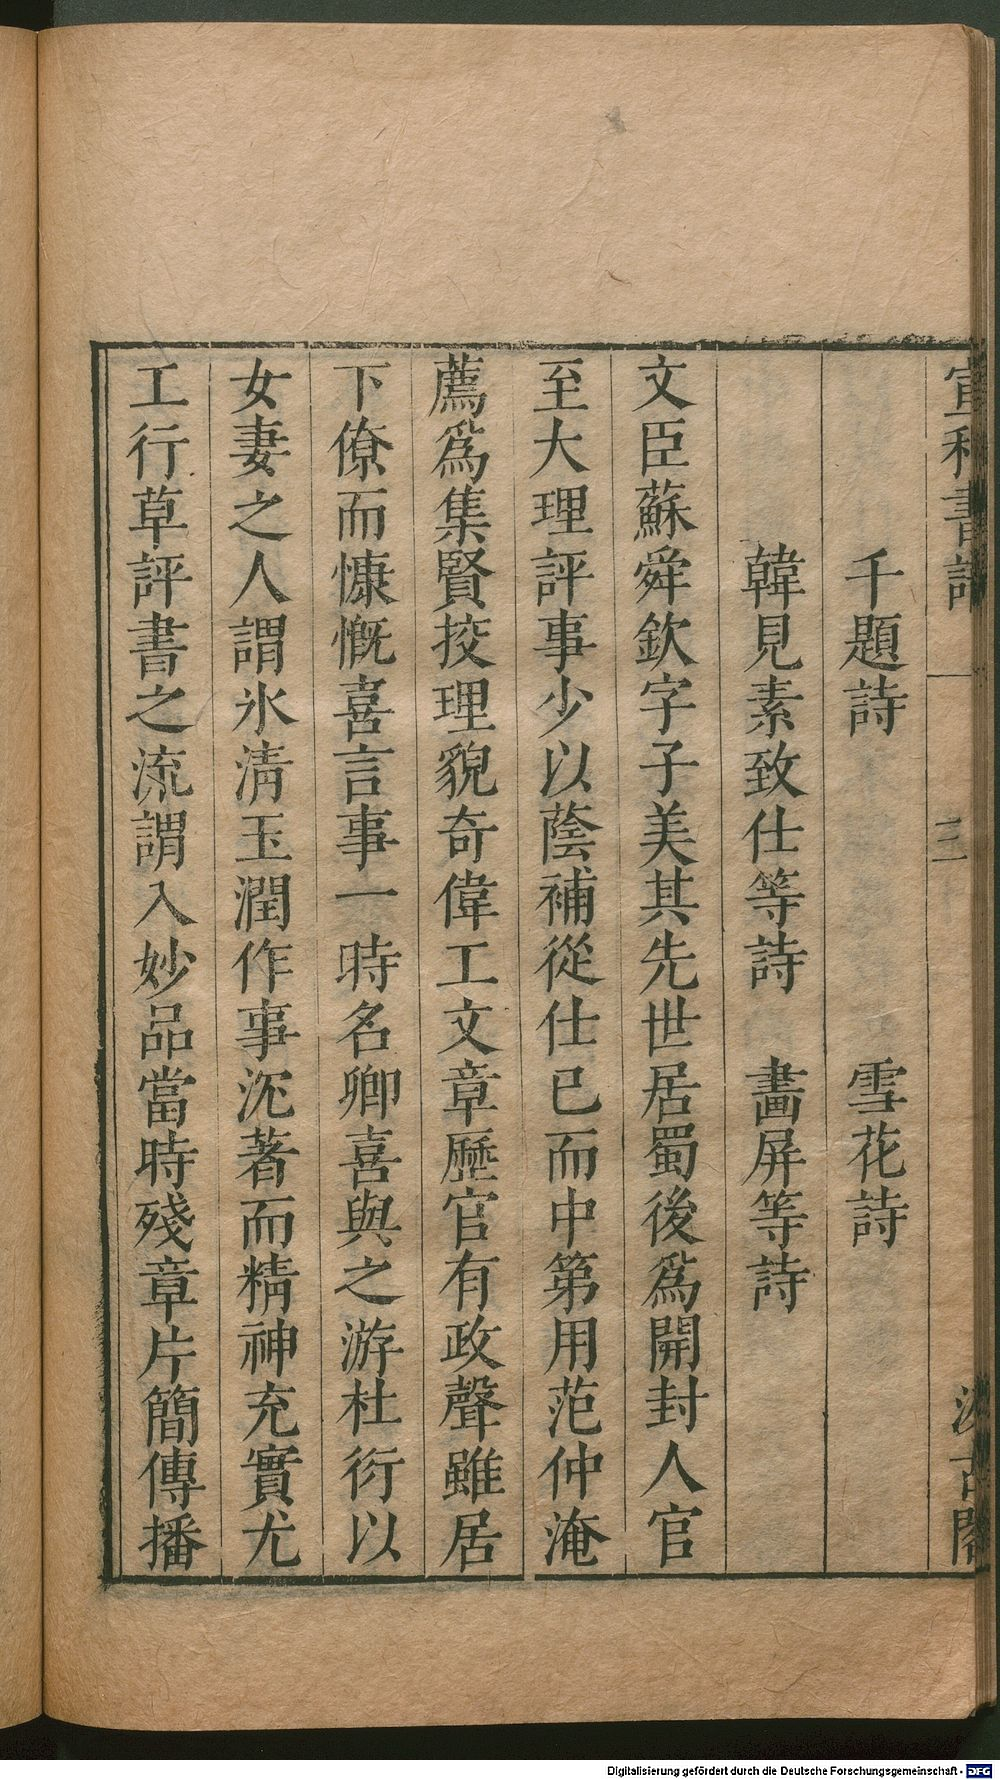 宣和書譜 三 汲古閣
千題詩 雪花詩
韓見素致仕等詩 畫屏等詩
文臣蘇舜欽字子美其先世居蜀後爲開封人官
至大理評事少以蔭補從仕已而中第用范仲淹
薦爲集賢挍理貌奇偉工文章歷官有政聲雖居
下僚而慷慨喜言事一時名卿喜與之游杜衍以
女妻之人謂氷清玉潤作事沉著而精神充實尤
工行草評書之流謂入妙品當時殘章片簡傳播
Digitalisierung gefördert durch die Deutsche Forschungsgemeinschaft - DFG